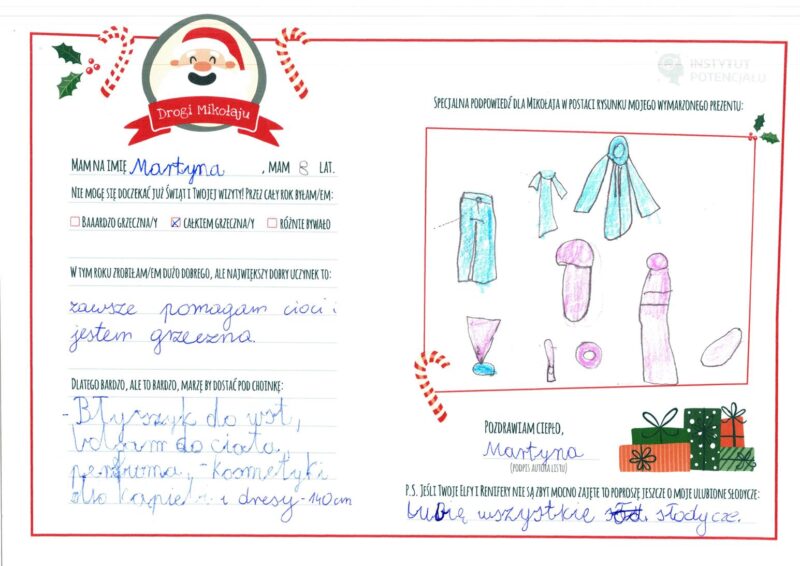 Drogi Mikołaju
INSTYTUT
POTENCJAŁU
Mam na imię Martyna, mam 8 lat.
Nie mogę się doczekać już Świąt i Twojej wizyty! Przez cały rok byłam/em:
Baaardzo grzeczna/y ☒ całkiem grzeczna/y różnie bywało
W tym roku zrobiłam/em dużo dobrego, ale największy dobry uczynek to:
zawsze pomagam cioci i
jestem grzeczna.
Dlatego bardzo, ale to bardzo, marzę by dostać pod choinkę:
- Błyszyk do ust,
balsam do ciała,
perfuma, - kosmetyki
dla kąpieli i dresy - 140 cm
Specjalna podpowiedź dla Mikołaja w postaci rysunku mojego wymarzonego prezentu:
Pozdrawiam ciepło,
Martyna
(podpis autora listu)
P.S. Jeśli Twoje Elfy i Renifery nie są zbyt mocno zajęte to poproszę jeszcze o moje ulubione słodycze:
Lubię wszystkie słodycze.